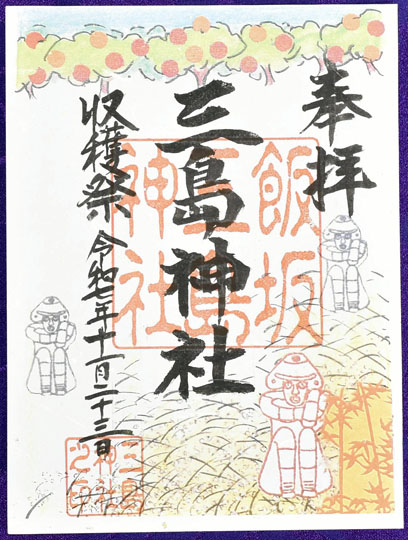 奉拝
飯坂
三島
神社
三島神社
収穫祭 令和七年十一月二十三日
三島
神社
之印